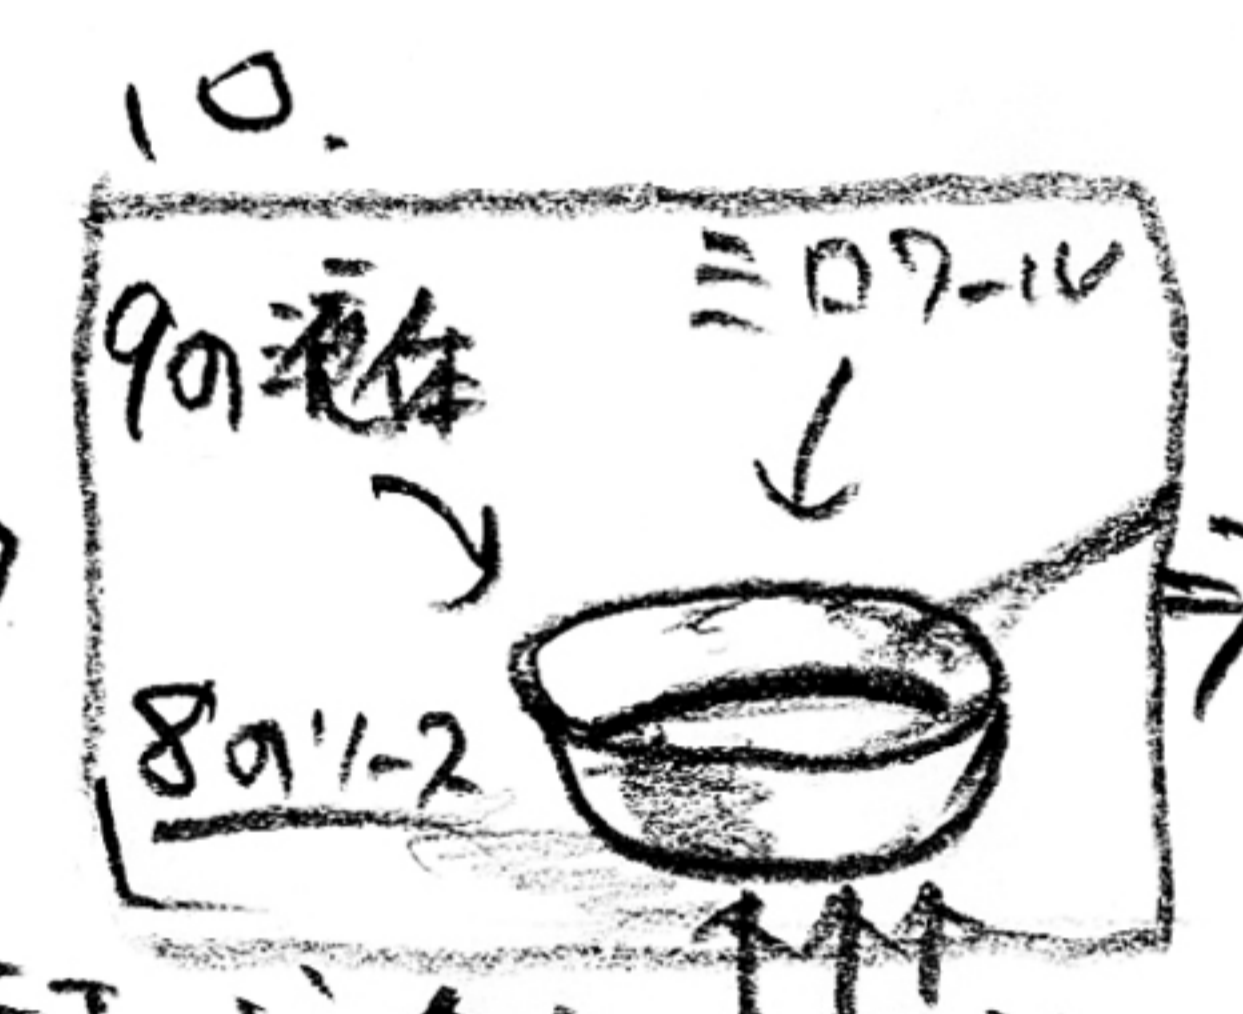 10.
9の液体
ミロワール
8のソース